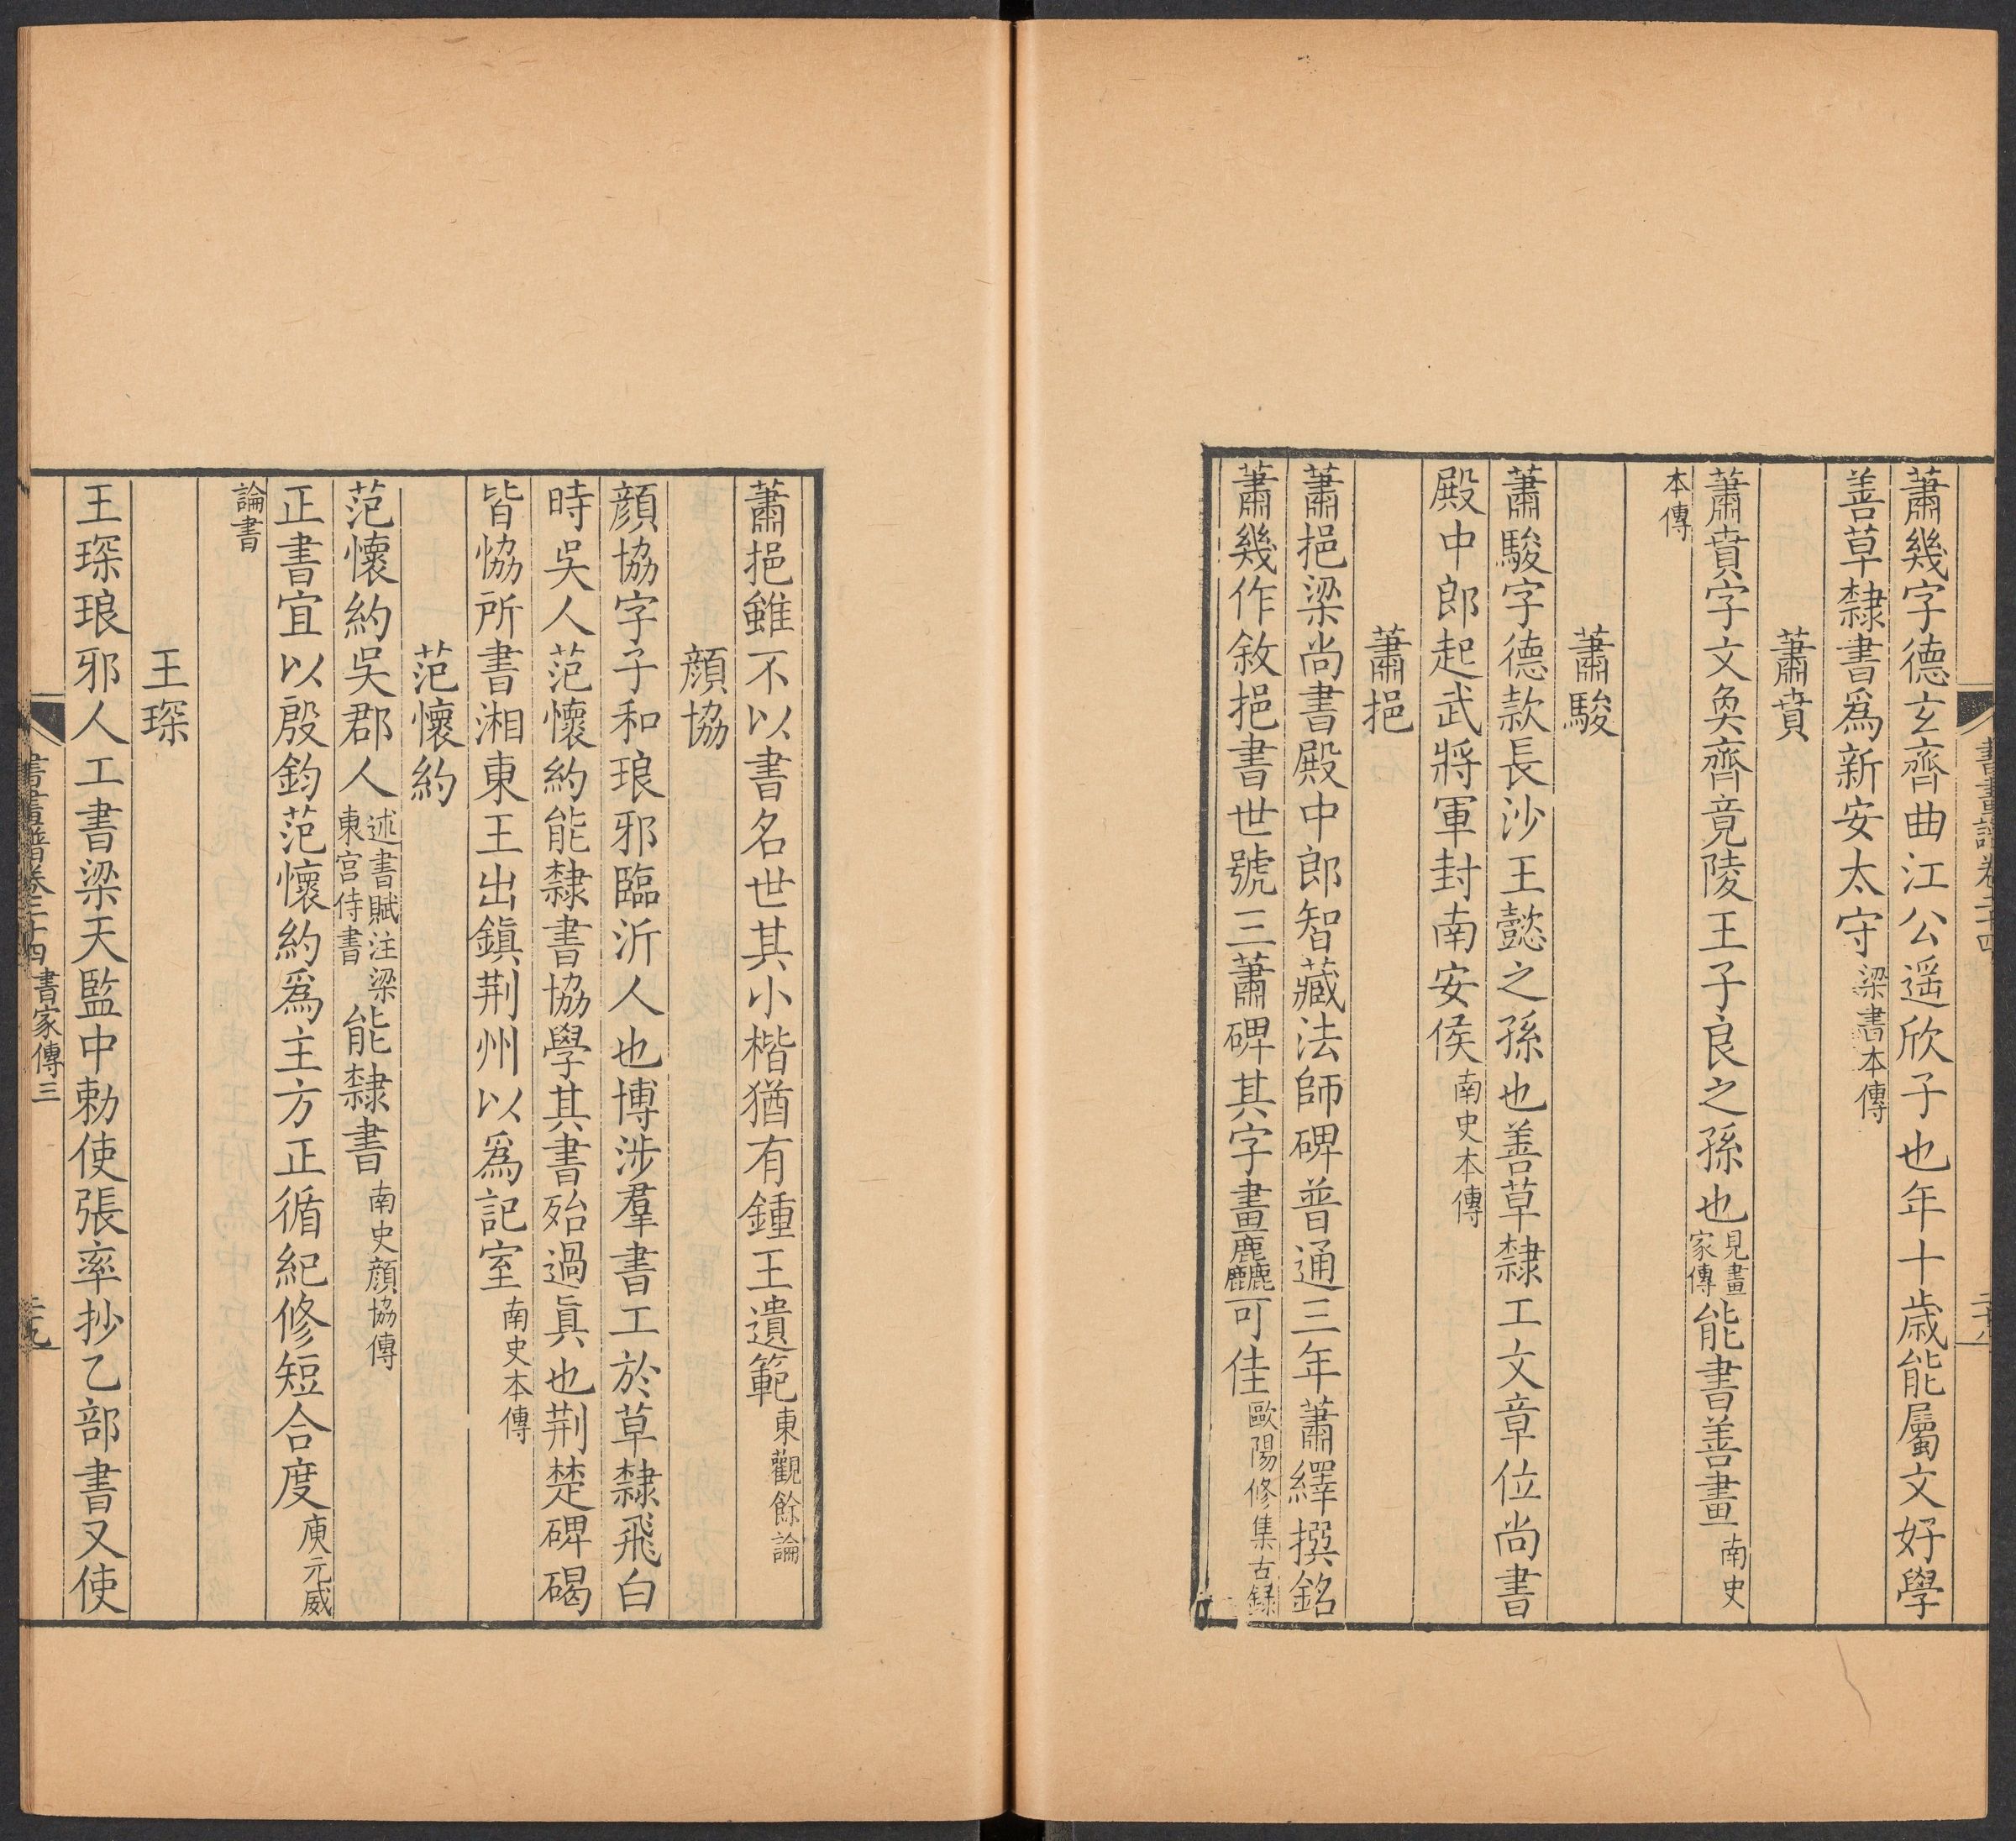 蕭幾字德玄齊曲江公遥欣子也年十歳能屬文好學
善草隸書爲新安太守梁書本傳
蕭賁
蕭賁字文奐齊竟陵王子良之孫也見畫家傳能書善畫南史
本傳
蕭駿
蕭駿字德款長沙王懿之孫也善草隸工文章位尚書
殿中郎起武將軍封南安侯南史本傳
蕭挹
蕭挹梁尚書殿中郎智藏法師碑普通三年蕭繹撰銘
蕭幾作敘挹書世號三蕭碑其字畫麤可佳歐陽修集古録
蕭挹雖不以書名世其小楷猶有鍾王遺範東觀餘論
顏協
顏協字子和琅邪臨沂人也博涉羣書工於草隸飛白
時吳人范懷約能隸書協學其書殆過眞也荆楚碑碣
皆協所書湘東王出鎭荆州以爲記室南史本傳
范懷約
范懷約吳郡人述書賦注梁東宮侍書能隸書南史顏協傳
正書宜以殷鈞范懷約爲主方正循紀修短合度庾元威
論書
王琛
王琛琅邪人工書梁天監中勅使張率抄乙部書又使
書畫譜卷二十四 書家傳三